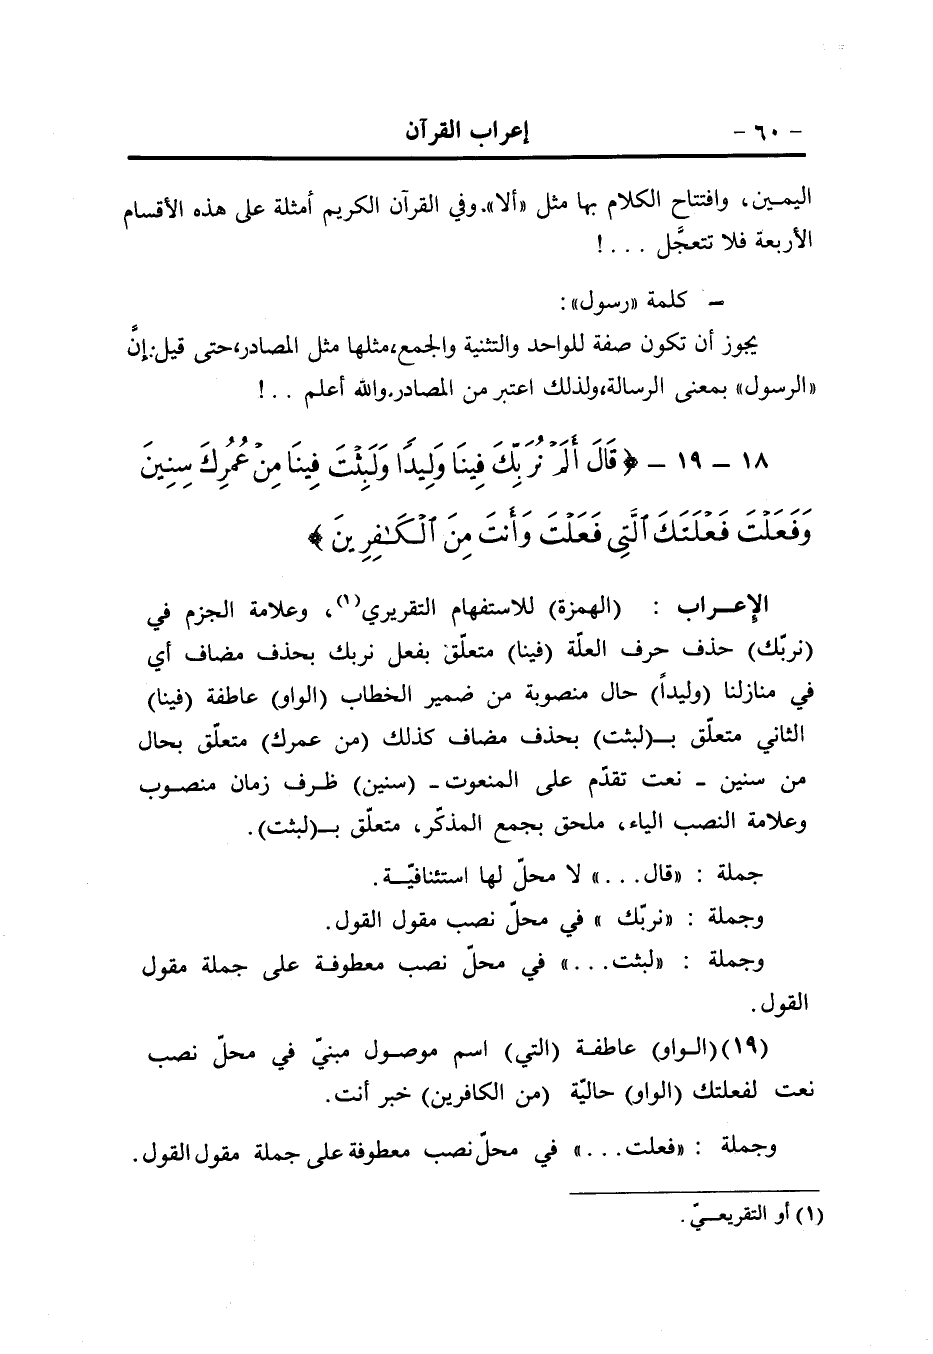 - ٦٠ - إعراب القرآن
اليمـين، وافتتاح الكلام بها مثل «ألا».وفي القرآن الكريم أمثلة على هذه الأقسام
الأربعة فلا تتعجَّل . . . !
– كلمة «رسول»:
يجوز أن تكون صفة للواحد والتثنية والجمع،مثلها مثل المصادر،حتى قيل:إنَّ
«الرسول» بمعنى الرسالة،ولذلك اعتبر من المصادر.والله أعلم . . !
١٨ - ١٩ - ﴿ قَالَ أَلَمْ نُرَبِّكَ فِينَا وَلِيدًا وَلَبِثْتَ فِينَا مِنْ عُمُرِكَ سِنِينَ
وَفَعَلْتَ فَعْلَتَكَ ٱلَّتِي فَعَلْتَ وَأَنتَ مِنَ ٱلْكَـٰفِرِينَ ﴾
الإعـراب : (الهمزة) للاستفهام التقريري(١)، وعلامة الجزم في
(نربّك) حذف حرف العلّة (فينا) متعلّق بفعل نربك بحذف مضاف أي
في منازلنا (وليداً) حال منصوبة من ضمير الخطاب (الواو) عاطفة (فينا)
الثاني متعلّق بـ(لبثت) بحذف مضاف كذلك (من عمرك) متعلّق بحال
من سنين - نعت تقدّم على المنعوت - (سنين) ظرف زمان منصـوب
وعلامة النصب الياء، ملحق بجمع المذكّر، متعلّق بـ(لبثت).
جملة : «قال. . .» لا محلّ لها استئنافيّـة.
وجملة : «نربّك » في محلّ نصب مقول القول.
وجملة : «لبثت. . .» في محلّ نصب معطوفـة على جملة مقول
القول.
(١٩)(الـواو) عاطفـة (التي) اسم موصـول مبنيّ في محلّ نصب
نعت لفعلتك (الواو) حاليّة (من الكافرين) خبر أنت.
وجملة : «فعلت. . .» في محلّ نصب معطوفة على جملة مقول القول.
(١) أو التقريعـيّ.